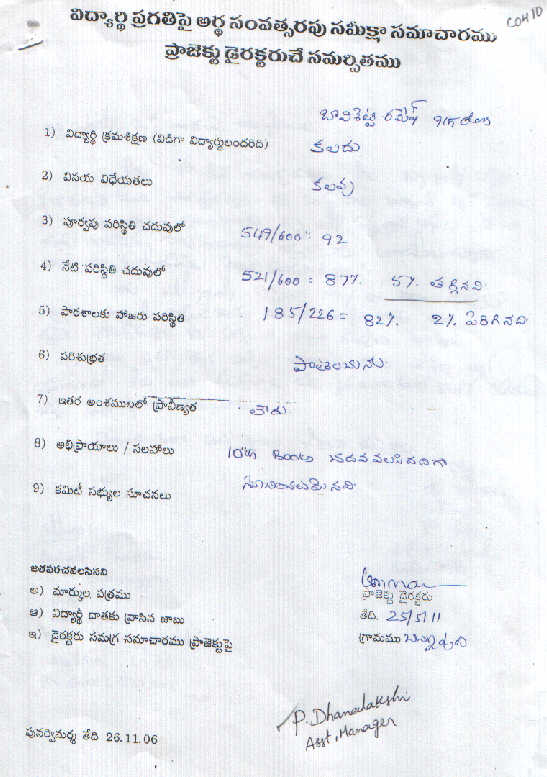 COH 10
విద్యార్థి ప్రగతిపై అర్థ సంవత్సరపు సమీక్షా సమాచారము
ప్రాజెక్టు డైరెక్టరుచే సమర్పితము
రమేష్
1) విద్యార్థి క్రమశిక్షణ (విడిగా విద్యార్థులందరి) కలదు
2) వినయ విధేయతలు కలవు
3) పూర్వపు పరిస్థితి చదువులో 549/600 = 92
4) నేటి పరిస్థితి చదువులో 521/600 = 87% 5% తగ్గినవి
5) పాఠశాలకు హాజరు పరిస్థితి 185/226 = 82% 2% పెరిగినవి
6) పరిశుభ్రత పాటించును
7) ఇతర అంశములలో ప్రావీణ్యత లేదు
8) అభిప్రాయాలు / సలహాలు 10th Books చదవవలసినదిగా
9) కమిటి సభ్యుల సూచనలు
జతపరచవలసినవి
అ) మార్కుల పత్రము
ఆ) విద్యార్థి దాతకు వ్రాసిన జాబు
ఇ) డైరెక్టరు సమగ్ర సమాచారము ప్రాజెక్టుపై
ప్రాజెక్టు డైరెక్టరు
తేది. 25/5/11
గ్రామము
P. Dhanalakshi
Asst, Manager
పునర్విమర్శ తేది 26.11.06